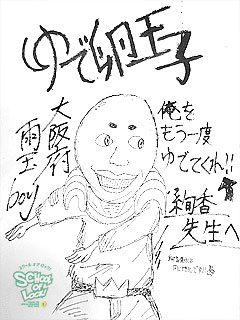 ゆで卵王子
大阪府
雨玉boy
俺を
もう一度
ゆでてくれ!!
絢香
先生へ
School
of
Lock!